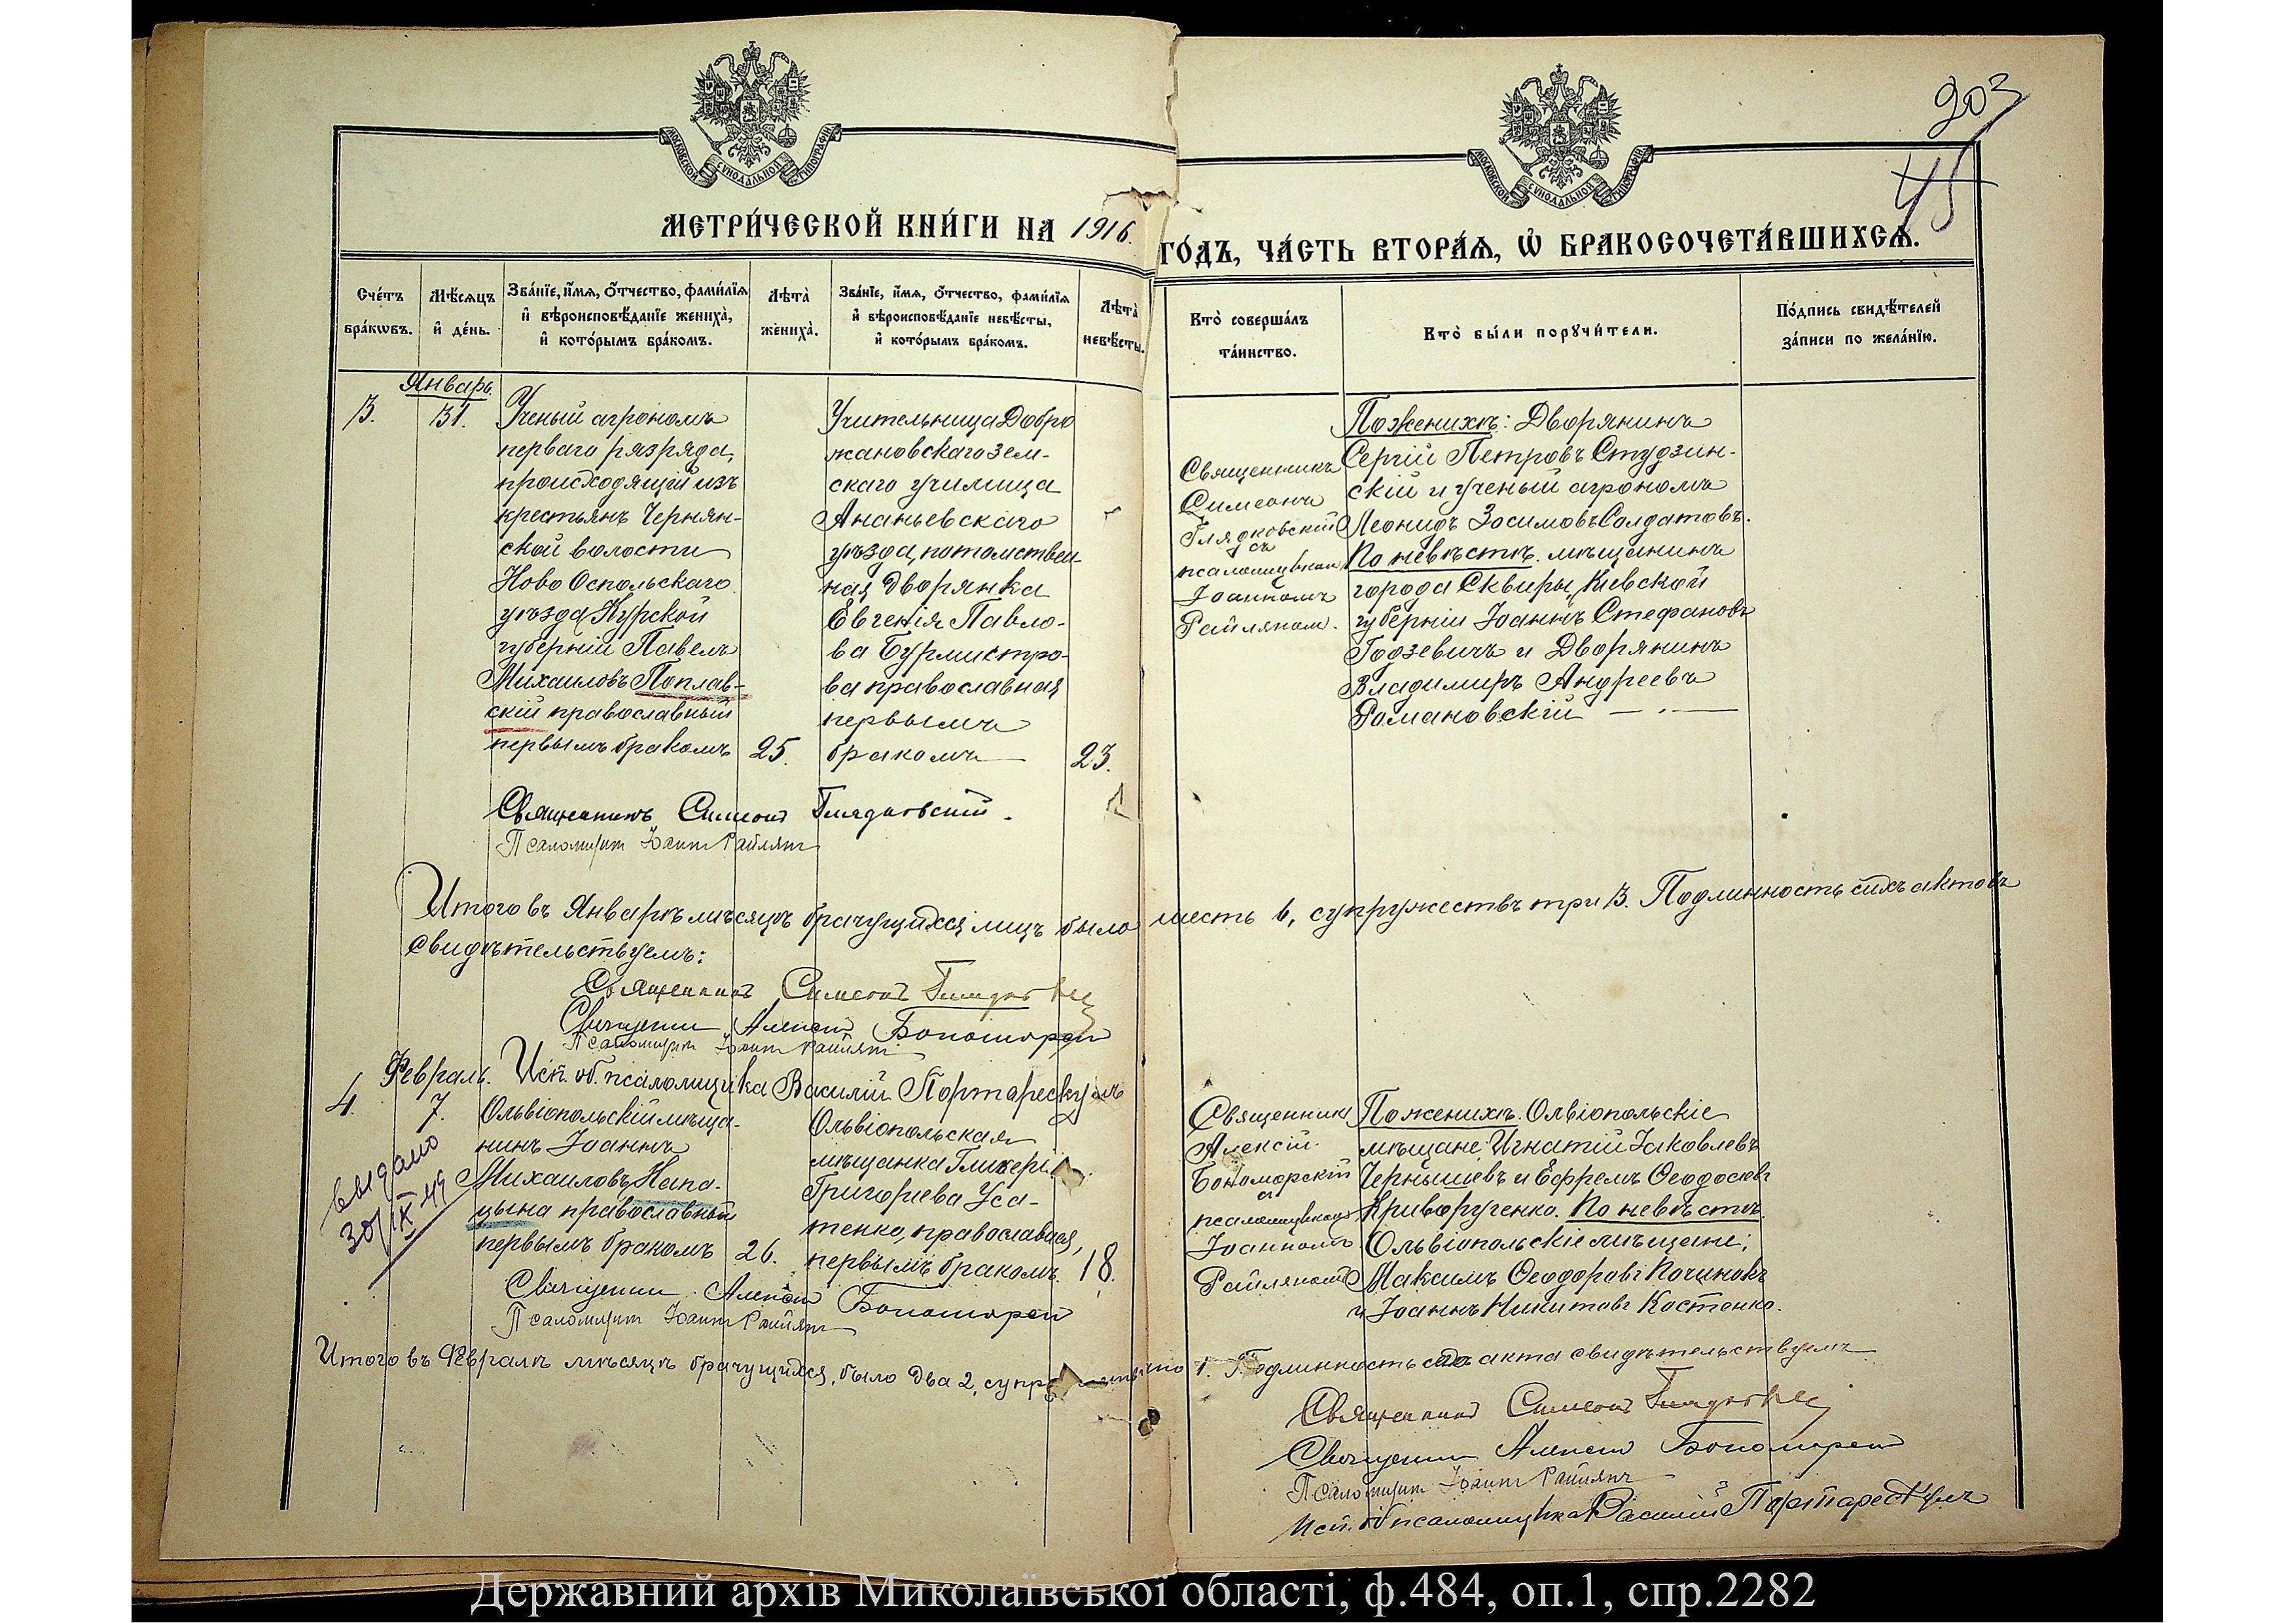 203
45
МОСКОВСКОЙ СѴНОДАЛЬНОЙ ТИПОГРАФІИ
МОСКОВСКОЙ СѴНОДАЛЬНОЙ ТИПОГРАФІИ
МЕТРИ́ЧЕСКОЙ КНИ́ГИ НА 1916.
ГО́ДЪ, ЧА́СТЬ ВТОРА́Ѧ, Ѡ҆ БРАКОСОЧЕТА́ВШИХСѦ.
Сче́тъ
бра́кѡвъ.
Мѣ́сѧцъ
и҆ де́нь.
Зва́нїе, и҆́мѧ, ѻ҆́тчество, фами́лїѧ
и҆ вѣроисповѣ́данїе жениха̀,
и҆ кото́рымъ бра́комъ.
Лѣта̀
жениха̀.
Зва́нїе, и҆́мѧ, ѻ҆́тчество, фами́лїѧ
и҆ вѣроисповѣ́данїе невѣ́сты,
и҆ кото́рымъ бра́комъ.
Лѣта̀
невѣ́сты.
Кто̀ соверша́лъ
та́инство.
Кто̀ бы́ли порꙋчи́тели.
По́дпись свидѣ́телей
за́писи по жела́нїю.
Январь.
3.
31.
Ученый агрономъ
перваго разряда,
происходящій изъ
крестьянъ Чернян-
ской волости
Ново Оскольскаго
уѣзда Курской
губерніи Павелъ
Михаиловъ Поплав-
скій православный
первымъ бракомъ
25.
Учительница Добро
жановскаго зем-
скаго училища
Ананьевскаго
уѣзда, потомствен-
ная дворянка
Евгенія Павло-
ва Бурмистро-
ва православная
первымъ
бракомъ
23.
Священникъ
Симеонъ
Глядковскій
съ
псаломщикомъ
Іоанномъ
Райляном.
По женихѣ: Дворянинъ
Сергій Петровъ Студзин-
скій и ученый агрономъ
Леонидъ Зосимовъ Солдатовъ.
По невѣстѣ. мѣщанинъ
города Сквиры, Кіевской
губерніи Іоаннъ Стефановъ
Годзевичъ и Дворянинъ
Владимиръ Андреевъ
Романовскій
Священникъ Симеонъ Глядковскій.
Псаломщикъ Іоаннъ Райлянъ
Итого въ Январѣ мѣсяцѣ брачущихся лицъ было шесть 6, супружествъ три 3. Подлинность сихъ актовъ
свидѣтельствуемъ:
Священникъ Симеонъ Глядковскій
Священникъ Алексій Бономорскій
Псаломщикъ Іоаннъ Райлянъ
Исп. об. псаломщика Василій Портарескулъ
Февраль.
4.
7.
выдано
30/IX 49
Ольвіопольскій мѣща-
нинъ Іоаннъ
Михаиловъ Капа-
цына православный
первымъ бракомъ
26.
Ольвіопольская
мѣщанка Гликерія
Григориева Уса-
тенко, православная,
первымъ бракомъ.
18.
Священникъ
Алексій
Бономорскій
съ
псаломщикомъ
Іоанномъ
Райляномъ
По женихѣ. Олвіопольскіе
мѣщане; Игнатій Іаковлевъ
Чернышевъ и Ефремъ Ѳеодосіевъ
Криворученко. По невѣстѣ.
Ольвіопольскіе мѣщане;
Максимъ Ѳеодоровъ Починокъ
и Іоаннъ Никитовъ Костенко.
Священникъ Алексій Бономорскій
Псаломщикъ Іоаннъ Райлянъ
Итого въ Февралѣ мѣсяцѣ брачущихся, было два 2, 1. Подлинность сего акта свидѣтельствуемъ
Священникъ Симеонъ Глядковскій
Священникъ Алексій Бономорскій
Псаломщикъ Іоаннъ Райлянъ
Исп. об. псаломщика Василій Портарескулъ
Державний архів Миколаївської області, ф.484, оп.1, спр.2282